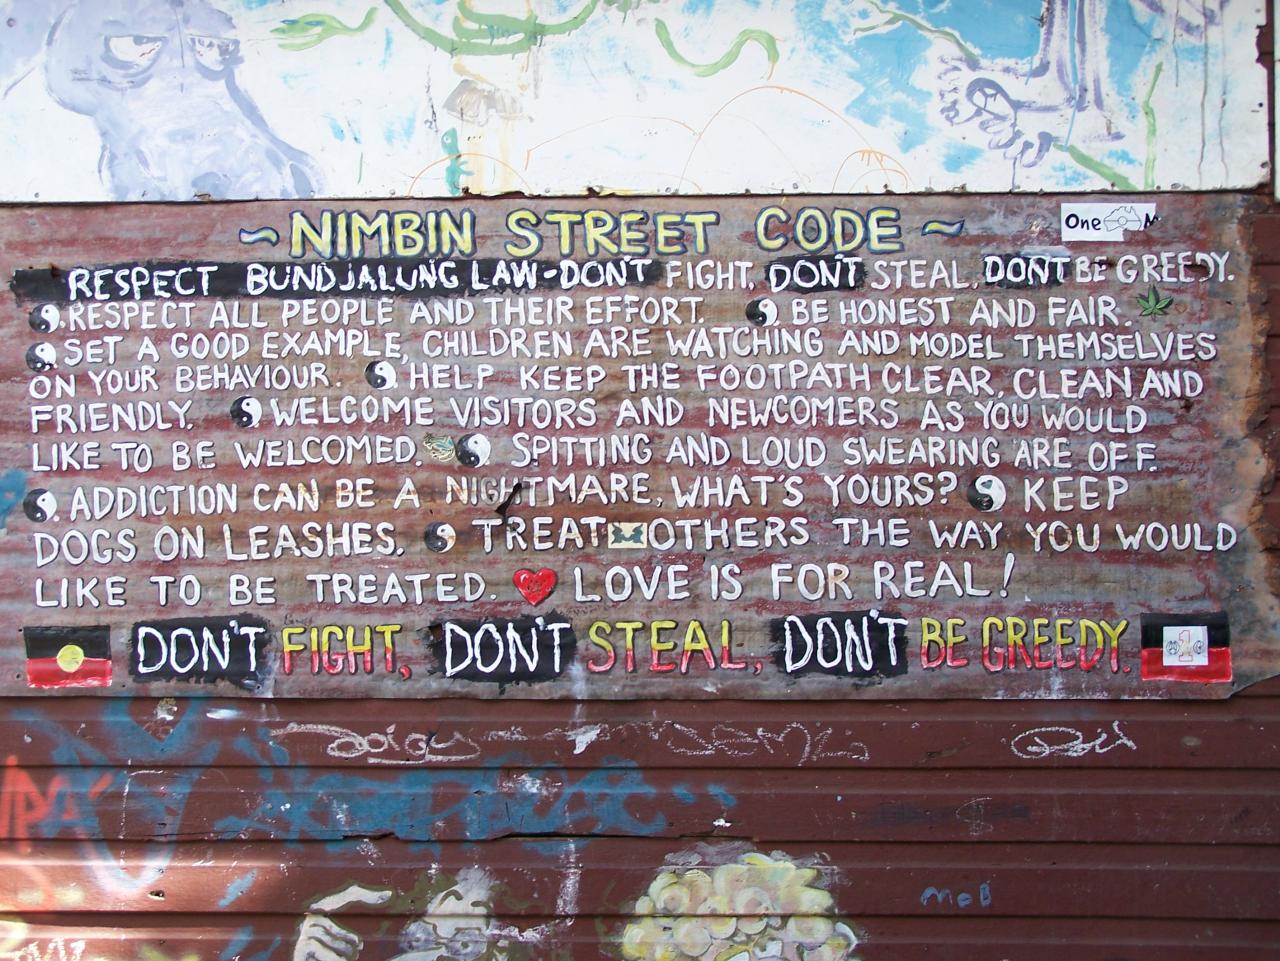 ~NIMBIN STREET CODE~
One
RESPECT BUNDJALUNG LAW-DON'T FIGHT, DON'T STEAL, DON'T BE GREEDY.
RESPECT ALL PEOPLE AND THEIR EFFORT. BE HONEST AND FAIR.
SET A GOOD EXAMPLE, CHILDREN ARE WATCHING AND MODEL THEMSELVES
ON YOUR BEHAVIOUR. HELP KEEP THE FOOTPATH CLEAR, CLEAN AND
FRIENDLY. WELCOME VISITORS AND NEWCOMERS AS YOU WOULD
LIKE TO BE WELCOMED. SPITTING AND LOUD SWEARING ARE OFF.
ADDICTION CAN BE A NIGHTMARE, WHAT'S YOURS? KEEP
DOGS ON LEASHES. TREAT OTHERS THE WAY YOU WOULD
LIKE TO BE TREATED. LOVE IS FOR REAL!
DON'T FIGHT, DON'T STEAL, DON'T BE GREEDY.
1
MOB